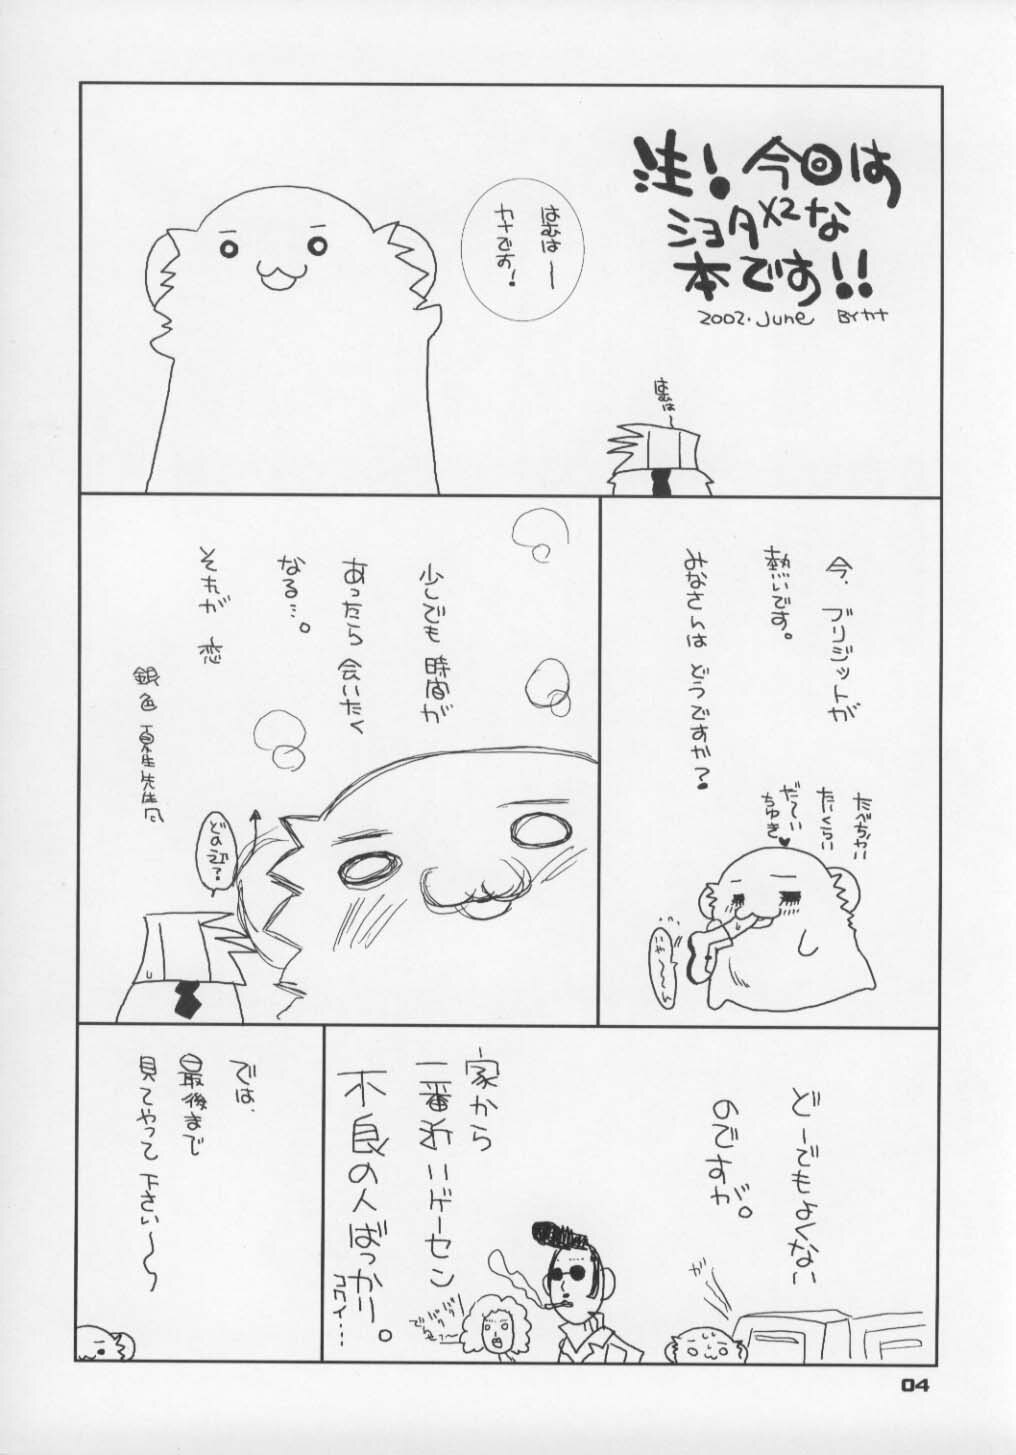 注！今回は
ショタ×2な
本です!!
2002.June BYカナ
はむは〜
カナです！
はむは〜
今、ブリジットが
熱いです。
みなさんは どうですか？
たべちゃい
たいくらい
だ〜い
ちゅき♥
いや〜〜
少しでも 時間が
あったら 会いたく
なる…。
それが 恋
銀色夏生先生
どの辺？
どーでもよくない
のですが。
家から
一番近いゲーセン
不良の人ばっかり。
コワイ…
ガ
では、
最後まで
見てやって下さい〜〜
04